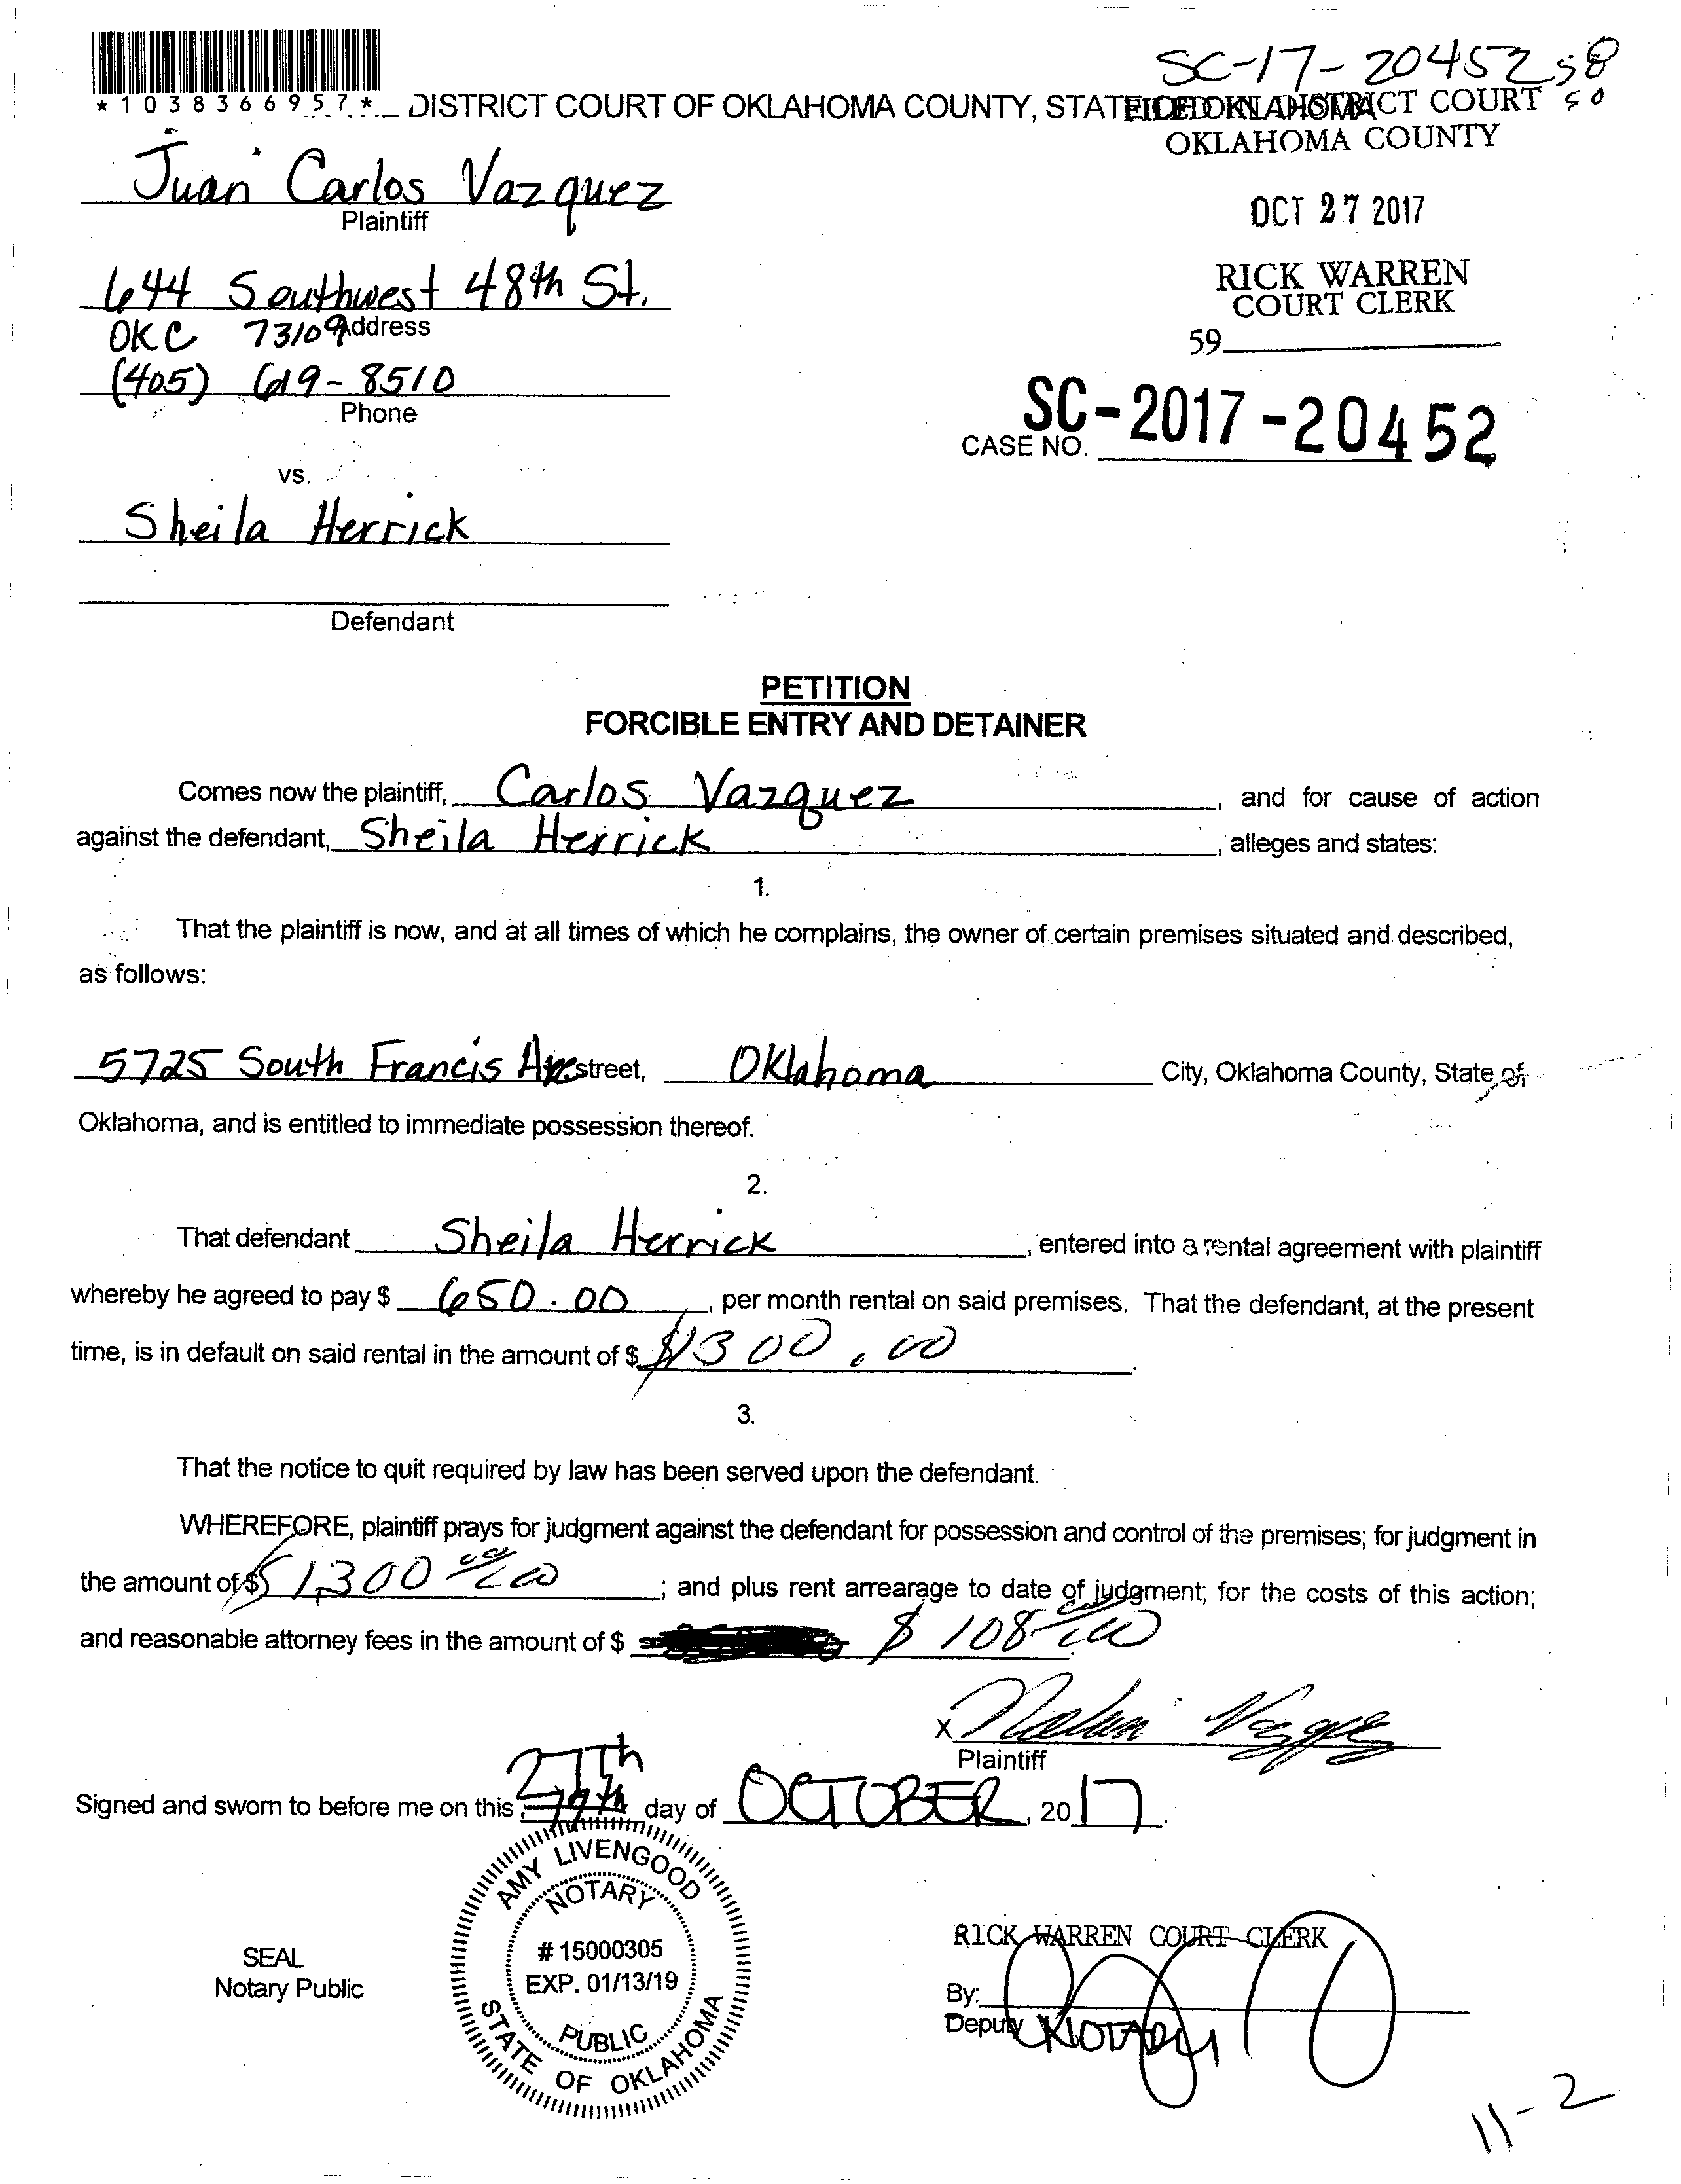 SC-17-20452 58
50
*1038366957*
DISTRICT COURT OF OKLAHOMA COUNTY, STATE OF OKLAHOMA
FILED IN DISTRICT COURT
OKLAHOMA COUNTY
Juan Carlos Vazquez
Plaintiff
OCT 27 2017
644 Southwest 48th St.
Address
OKC 73109
RICK WARREN
COURT CLERK
59
(405) 619-8510
Phone
SC-2017-20452
CASE NO.
vs.
Sheila Herrick
Defendant
PETITION
FORCIBLE ENTRY AND DETAINER
Comes now the plaintiff, Carlos Vazquez, and for cause of action
against the defendant, Sheila Herrick, alleges and states:
1.
That the plaintiff is now, and at all times of which he complains, the owner of certain premises situated and described,
as follows:
5725 South Francis Ave street, Oklahoma City, Oklahoma County, State of
Oklahoma, and is entitled to immediate possession thereof.
2.
That defendant Sheila Herrick, entered into a rental agreement with plaintiff
whereby he agreed to pay $ 650.00, per month rental on said premises. That the defendant, at the present
time, is in default on said rental in the amount of $ $1300.00.
3.
That the notice to quit required by law has been served upon the defendant.
WHEREFORE, plaintiff prays for judgment against the defendant for possession and control of the premises; for judgment in
the amount of $ $1,300 00/00; and plus rent arrearage to date of judgment; for the costs of this action;
and reasonable attorney fees in the amount of $ $108 00/00.
X
Plaintiff
Signed and sworn to before me on this 27th day of OCTOBER, 2017.
AMY LIVENGOOD
NOTARY
# 15000305
EXP. 01/13/19
PUBLIC
STATE OF OKLAHOMA
SEAL
Notary Public
RICK WARREN COURT CLERK
By:
Deputy NOTARY
11-2